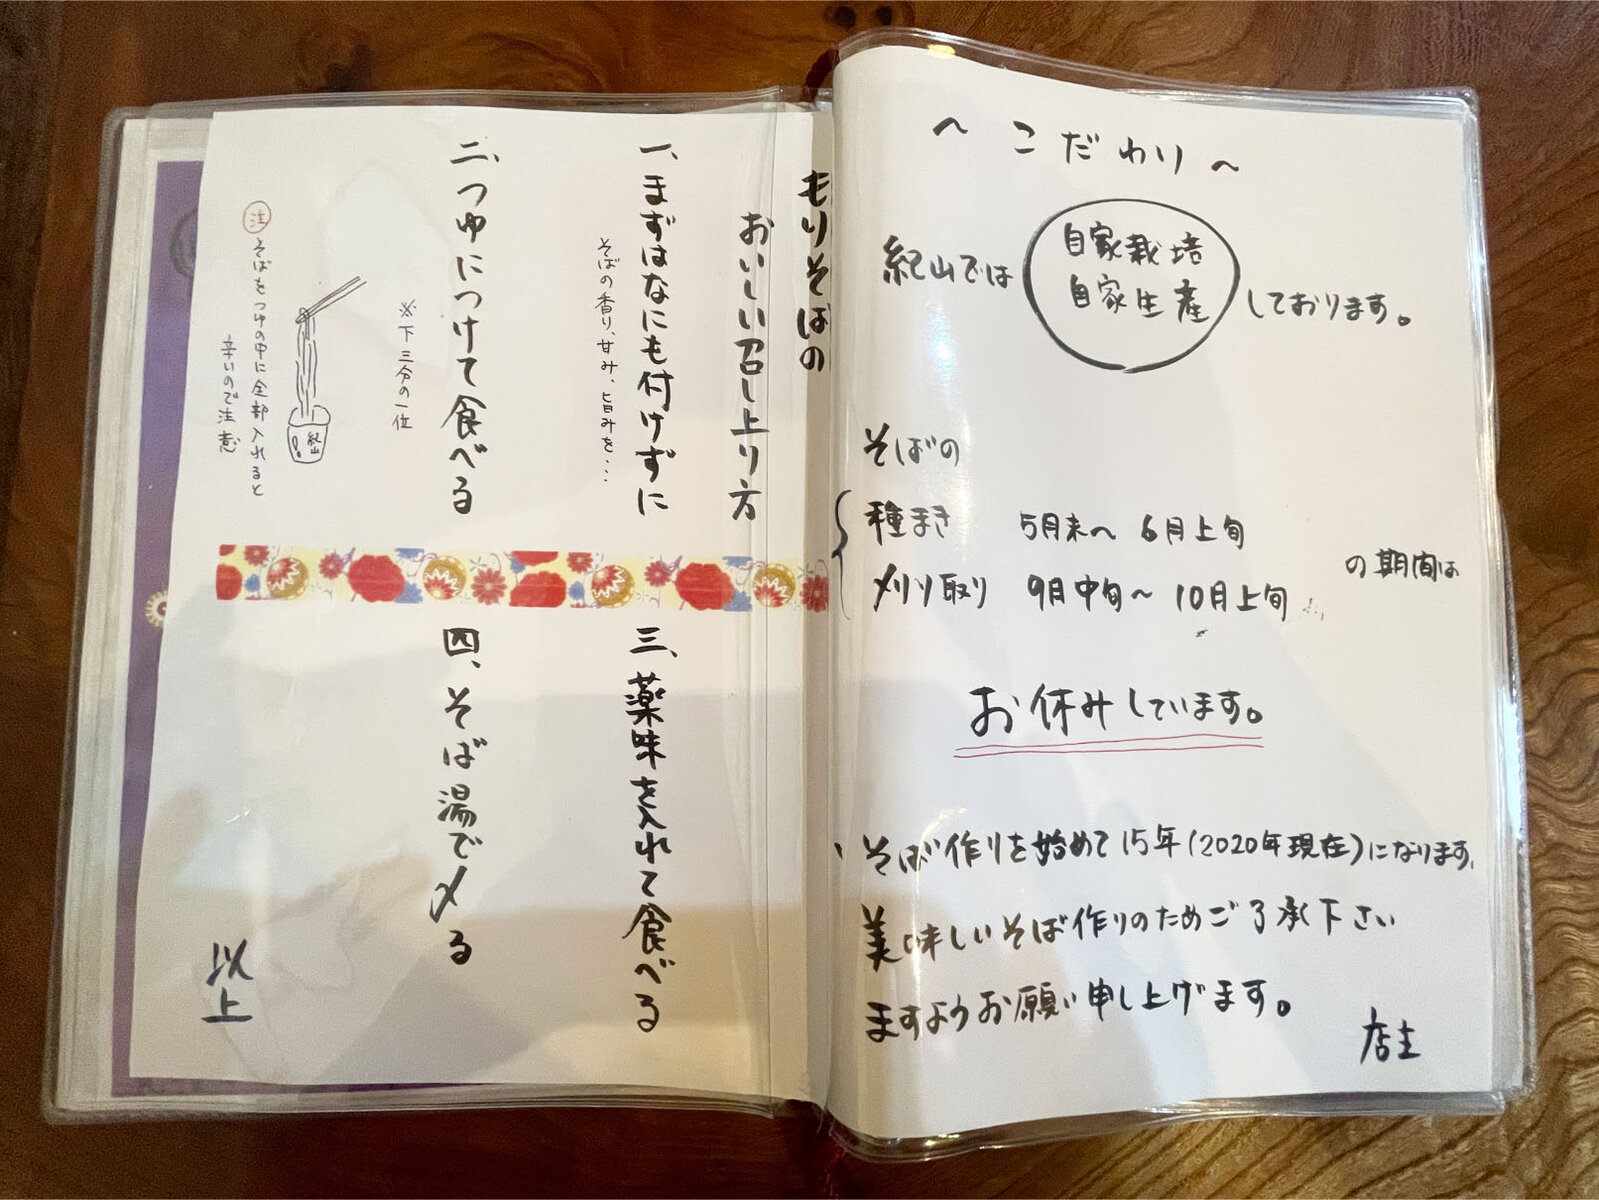 ~こだわり~
紀山では
自家栽培
自家生産
しております。
そばの
種まき 5月末〜6月上旬
刈り取り 9月中旬〜10月上旬
の期間は
お休みしています。
そば作りを始めて15年(2020年現在)になります、
美味しいそば作りのためご了承下さい
ますようお願い申し上げます。
店主
もりそばの
おいしい召し上り方
一、まずはなにも付けずに
そばの香り、甘み、旨みを…
二、つゆにつけて食べる
※下三分の一位
紀山
注 そばをつゆの中に全部入れると
辛いので注意
三、薬味を入れて食べる
四、そば湯で〆る
以上